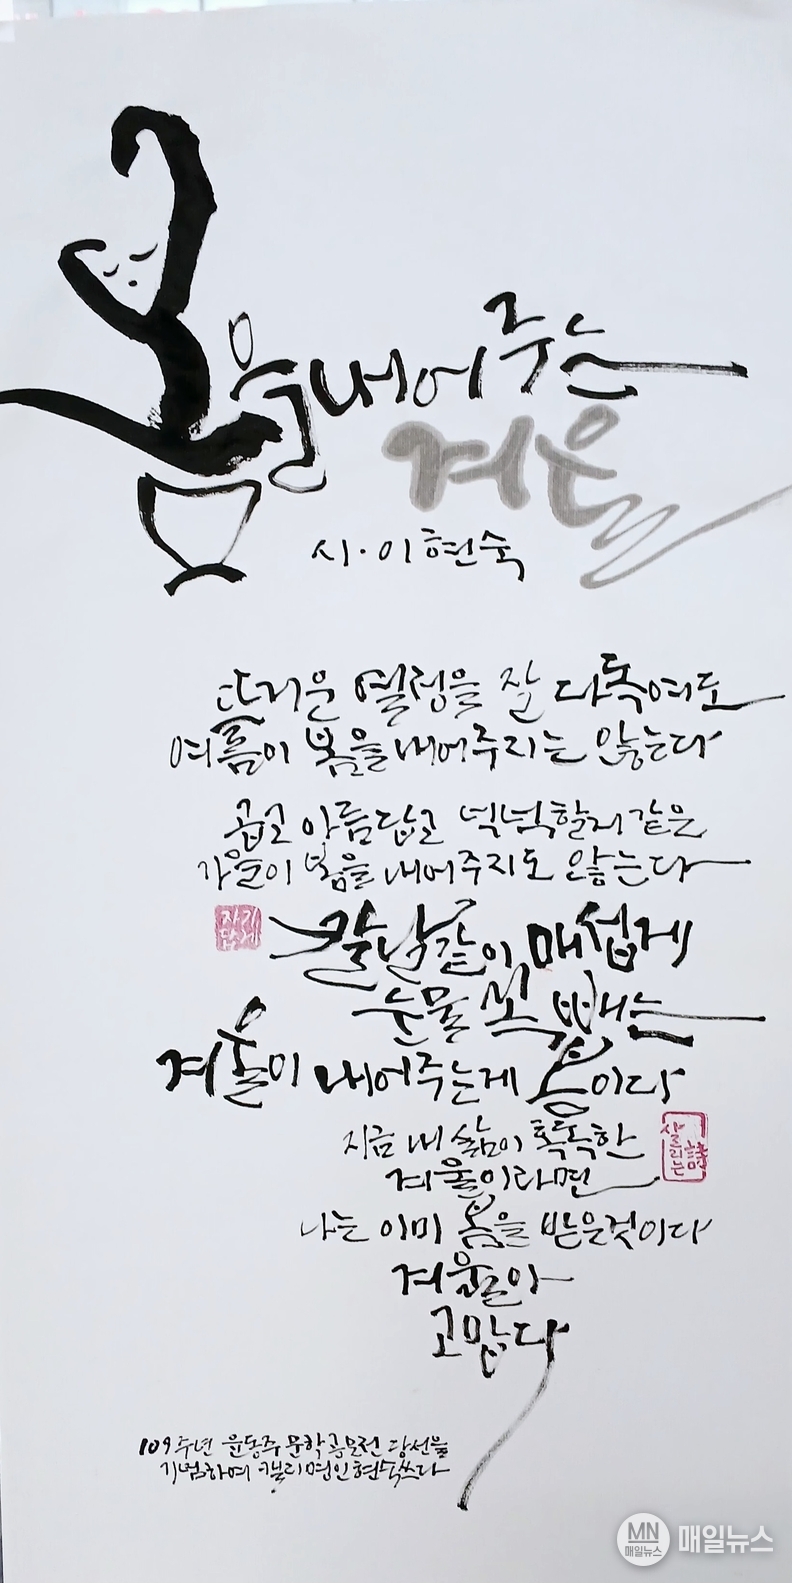 봄을 내어주는
겨울
시·이현숙
뜨거운 열정을 잘 다독여도
여름이 봄을 내어주지는 않는다
곱고 아름답고 넉넉할지 같은
가을이 봄을 내어주지도 않는다
칼날같이 매섭게
눈물 쏙 빼는
겨울이 내어주는게 봄이다
지금 내 삶이 혹독한
겨울이라면
나는 이미 봄을 받은것이다
겨울아
고맙다
109주년 윤동주 문학공모전 당선을
기념하여 캘리명인현숙쓰다
MN
매일뉴스
매일뉴스